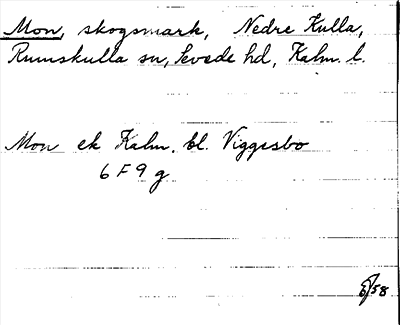 Mon, skogsmark, Nedre Kulla,
Rumskulla sn, Sevede hd, Kalm. l.
Mon ek Kalm. bl. Viggesbo
6 F 9 g
/58